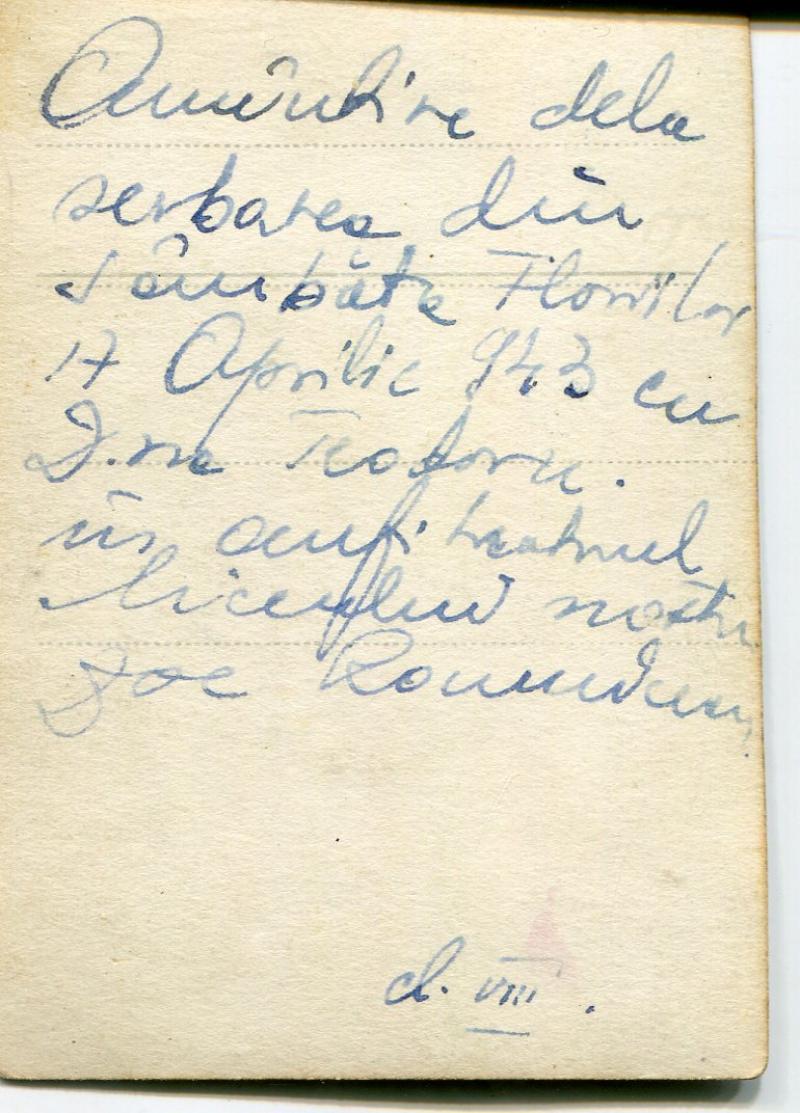 Amintire dela
serbarea din
Sâmbăta Floriilor
17 Aprilie 943 cu
D.na Teodoru.
în amfiteatrul
liceului nostru
Zoe Romniceanu.
cl. VIII.